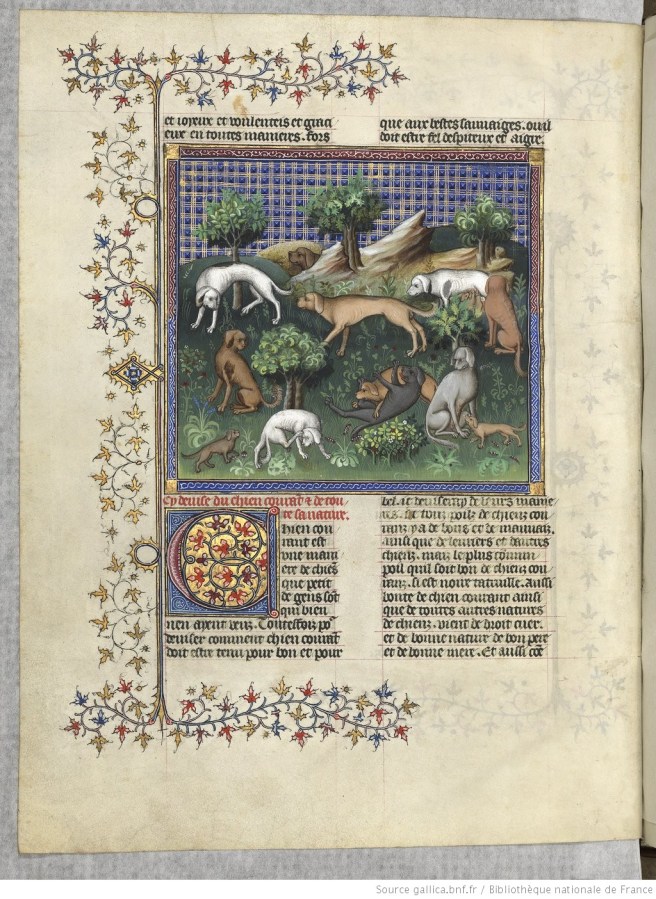 et ioyeux et voulenteis et graci
eux en toutes manieres. fors
que aux bestes sauuaiges. ou il
doit estre fel despiteux et aigre.
Cy deuise du chien courant & de tou
te sa nature.
Chien cou
rant est
vne mani
ere de chiēs
que petit
de gens sōt
qui bien
nen ayent veuz. Toutesfoiz po
deuiser comment chien courāt
doit estre tenu pour bon et pour
bel. it deuiseray de leurs manie
res. de touz poilz de chienz cou
ranz ya de bons et de mauuaiz.
ainsi que de leuriers et dautres
chienz. maiz le plus commun
poil quil soit bon de chienz cou
ranz. si est noire tatruille. Aussi
bonte de chien courant ainsi
que de toutes autres natures
de chienz. vient de droit cuer.
et de bonne nature de bon pere
et de bonne mere. Et aussi
Source gallica.bnf.fr / Bibliothèque nationale de France